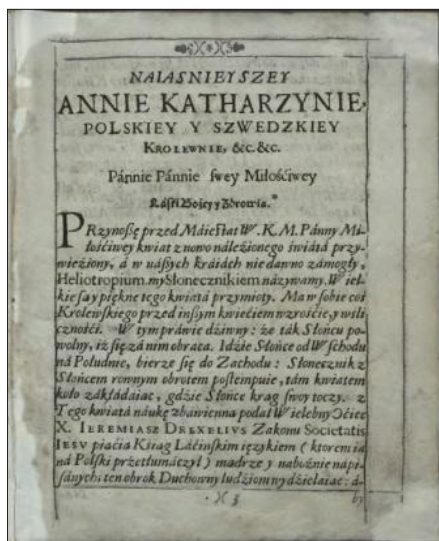 NAIASNIEYSZEY
ANNIE KATHARZYNIE,
POLSKIEY Y SZWEDZKIEY
KROLEWNIE, &c. &c.
Pánnie Pánnie swey Miłośćiwey
Łáski Bożey y Zdrowia.
PRzynoszę przed Máiestat W. K. M. Pánny Mi-
łościwey kwiat z nowo náleźionego świátá przy-
wieźiony, á w nászych kráiách nie dawno zámogły,
Heliotropium, my Słonecznikiem názywamy. Wiel-
kie są y piękne tego kwiatá przymioty. Ma w sobie coś
Krolewskiego przed inszym kwiećiem wzrośćie, y wśli
cznośći. W tym práwie dźiwny: że ták Słońcu po-
wolny, iż się zá nim obraca. Idźie Słońce od Wschodu
ná Południe, bierze się do Zachodu: Słonecznik z
Słońcem rownym obrotem postempuie, tám kwiatem
koło zákłádáiąc, gdźie Słońce krąg swoy toczy. z
Tego kwiatá náukę zbáwienna podał Wielebny Oćiec
X. IEREMIASZ DREXELIVS Zakonu Societatis
IESV piąćią Kśiąg Láćińskim ięzykiem (ktorem ia
ná Polski przetłumáczył) mądrze y nabożnie nápi-
sánych: ten obrok Duchowny ludźiom wydźielaiąc: á-
)( 3
by